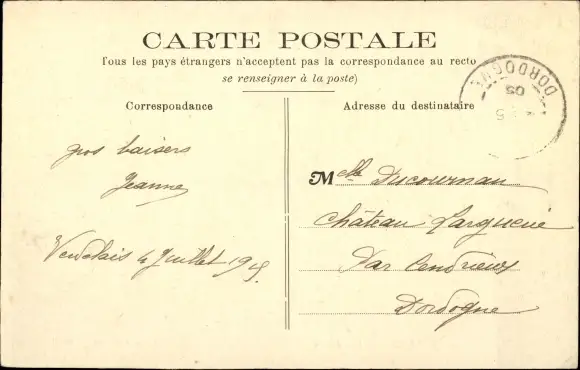 CARTE POSTALE
Tous les pays étrangers n'acceptent pas la correspondance au recto
se renseigner à la poste)
Correspondance
Adresse du destinataire
DORDOGNE
05
gros baisers
Jeanne
Verdelais 4 Juillet 195.
Melle Ducournau
Château Larguerie
Par Cendrieux
Dordogne